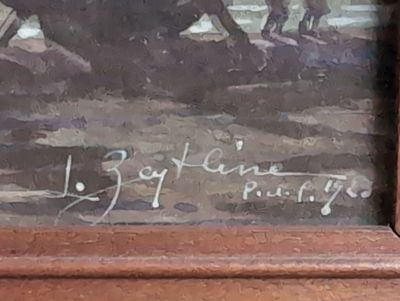 L. Zeytline P.u.f. 1920